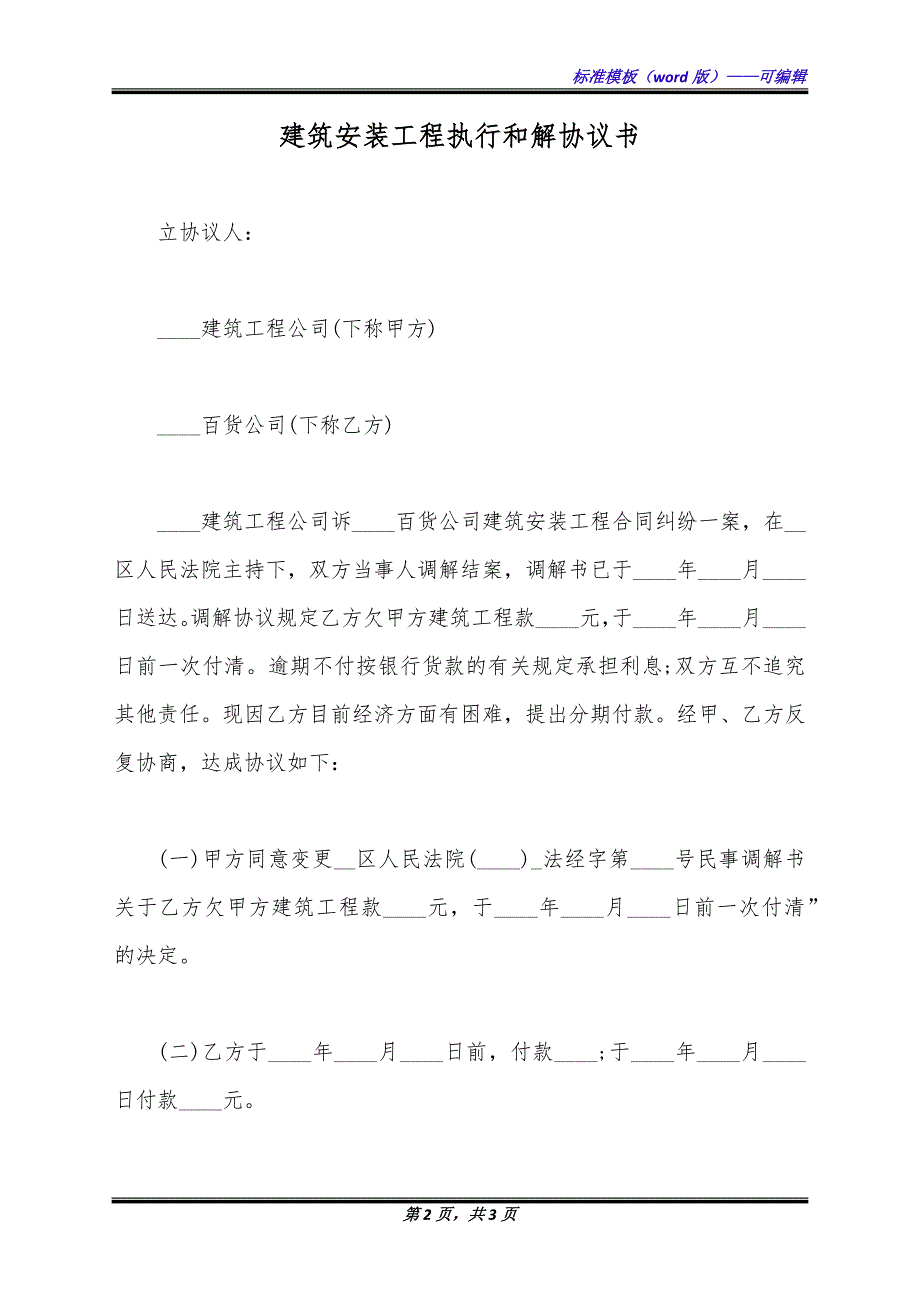 标准模板（word 版）——可编辑
建筑安装工程执行和解协议书
立协议人：
____建筑工程公司(下称甲方)
____百货公司(下称乙方)
____建筑工程公司诉____百货公司建筑安装工程合同纠纷一案，在__
区人民法院主持下，双方当事人调解结案，调解书已于____年____月____
日送达。调解协议规定乙方欠甲方建筑工程款____元，于____年____月____
日前一次付清。逾期不付按银行货款的有关规定承担利息;双方互不追究
其他责任。现因乙方目前经济方面有困难，提出分期付款。经甲、乙方反
复协商，达成协议如下：
(一)甲方同意变更__区人民法院(____)_法经字第____号民事调解书
关于乙方欠甲方建筑工程款____元，于____年____月____日前一次付清”
的决定。
(二)乙方于____年____月____日前，付款____;于____年____月____
日付款____元。
第 2 页，共 3 页